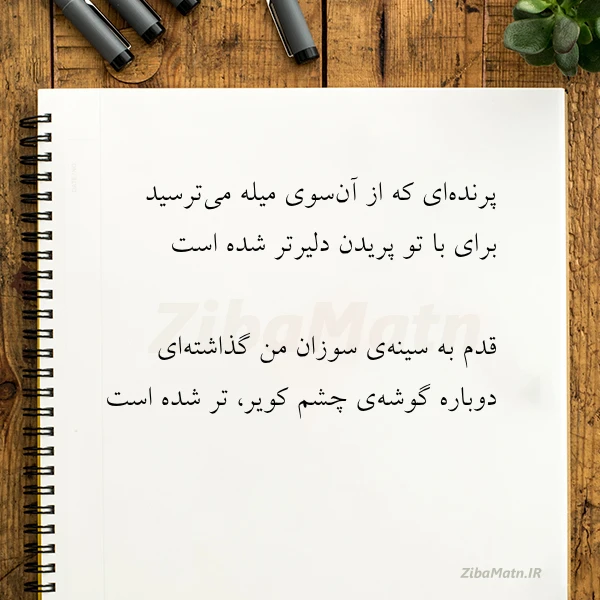 پرنده‌ای که از آن‌سوی میله می‌ترسید
برای با تو پریدن دلیرتر شده است
ZibaMatn
قدم به سینه‌ی سوزان من گذاشته‌ای
دوباره گوشه‌ی چشم کویر، تر شده است
ZibaMatn.IR